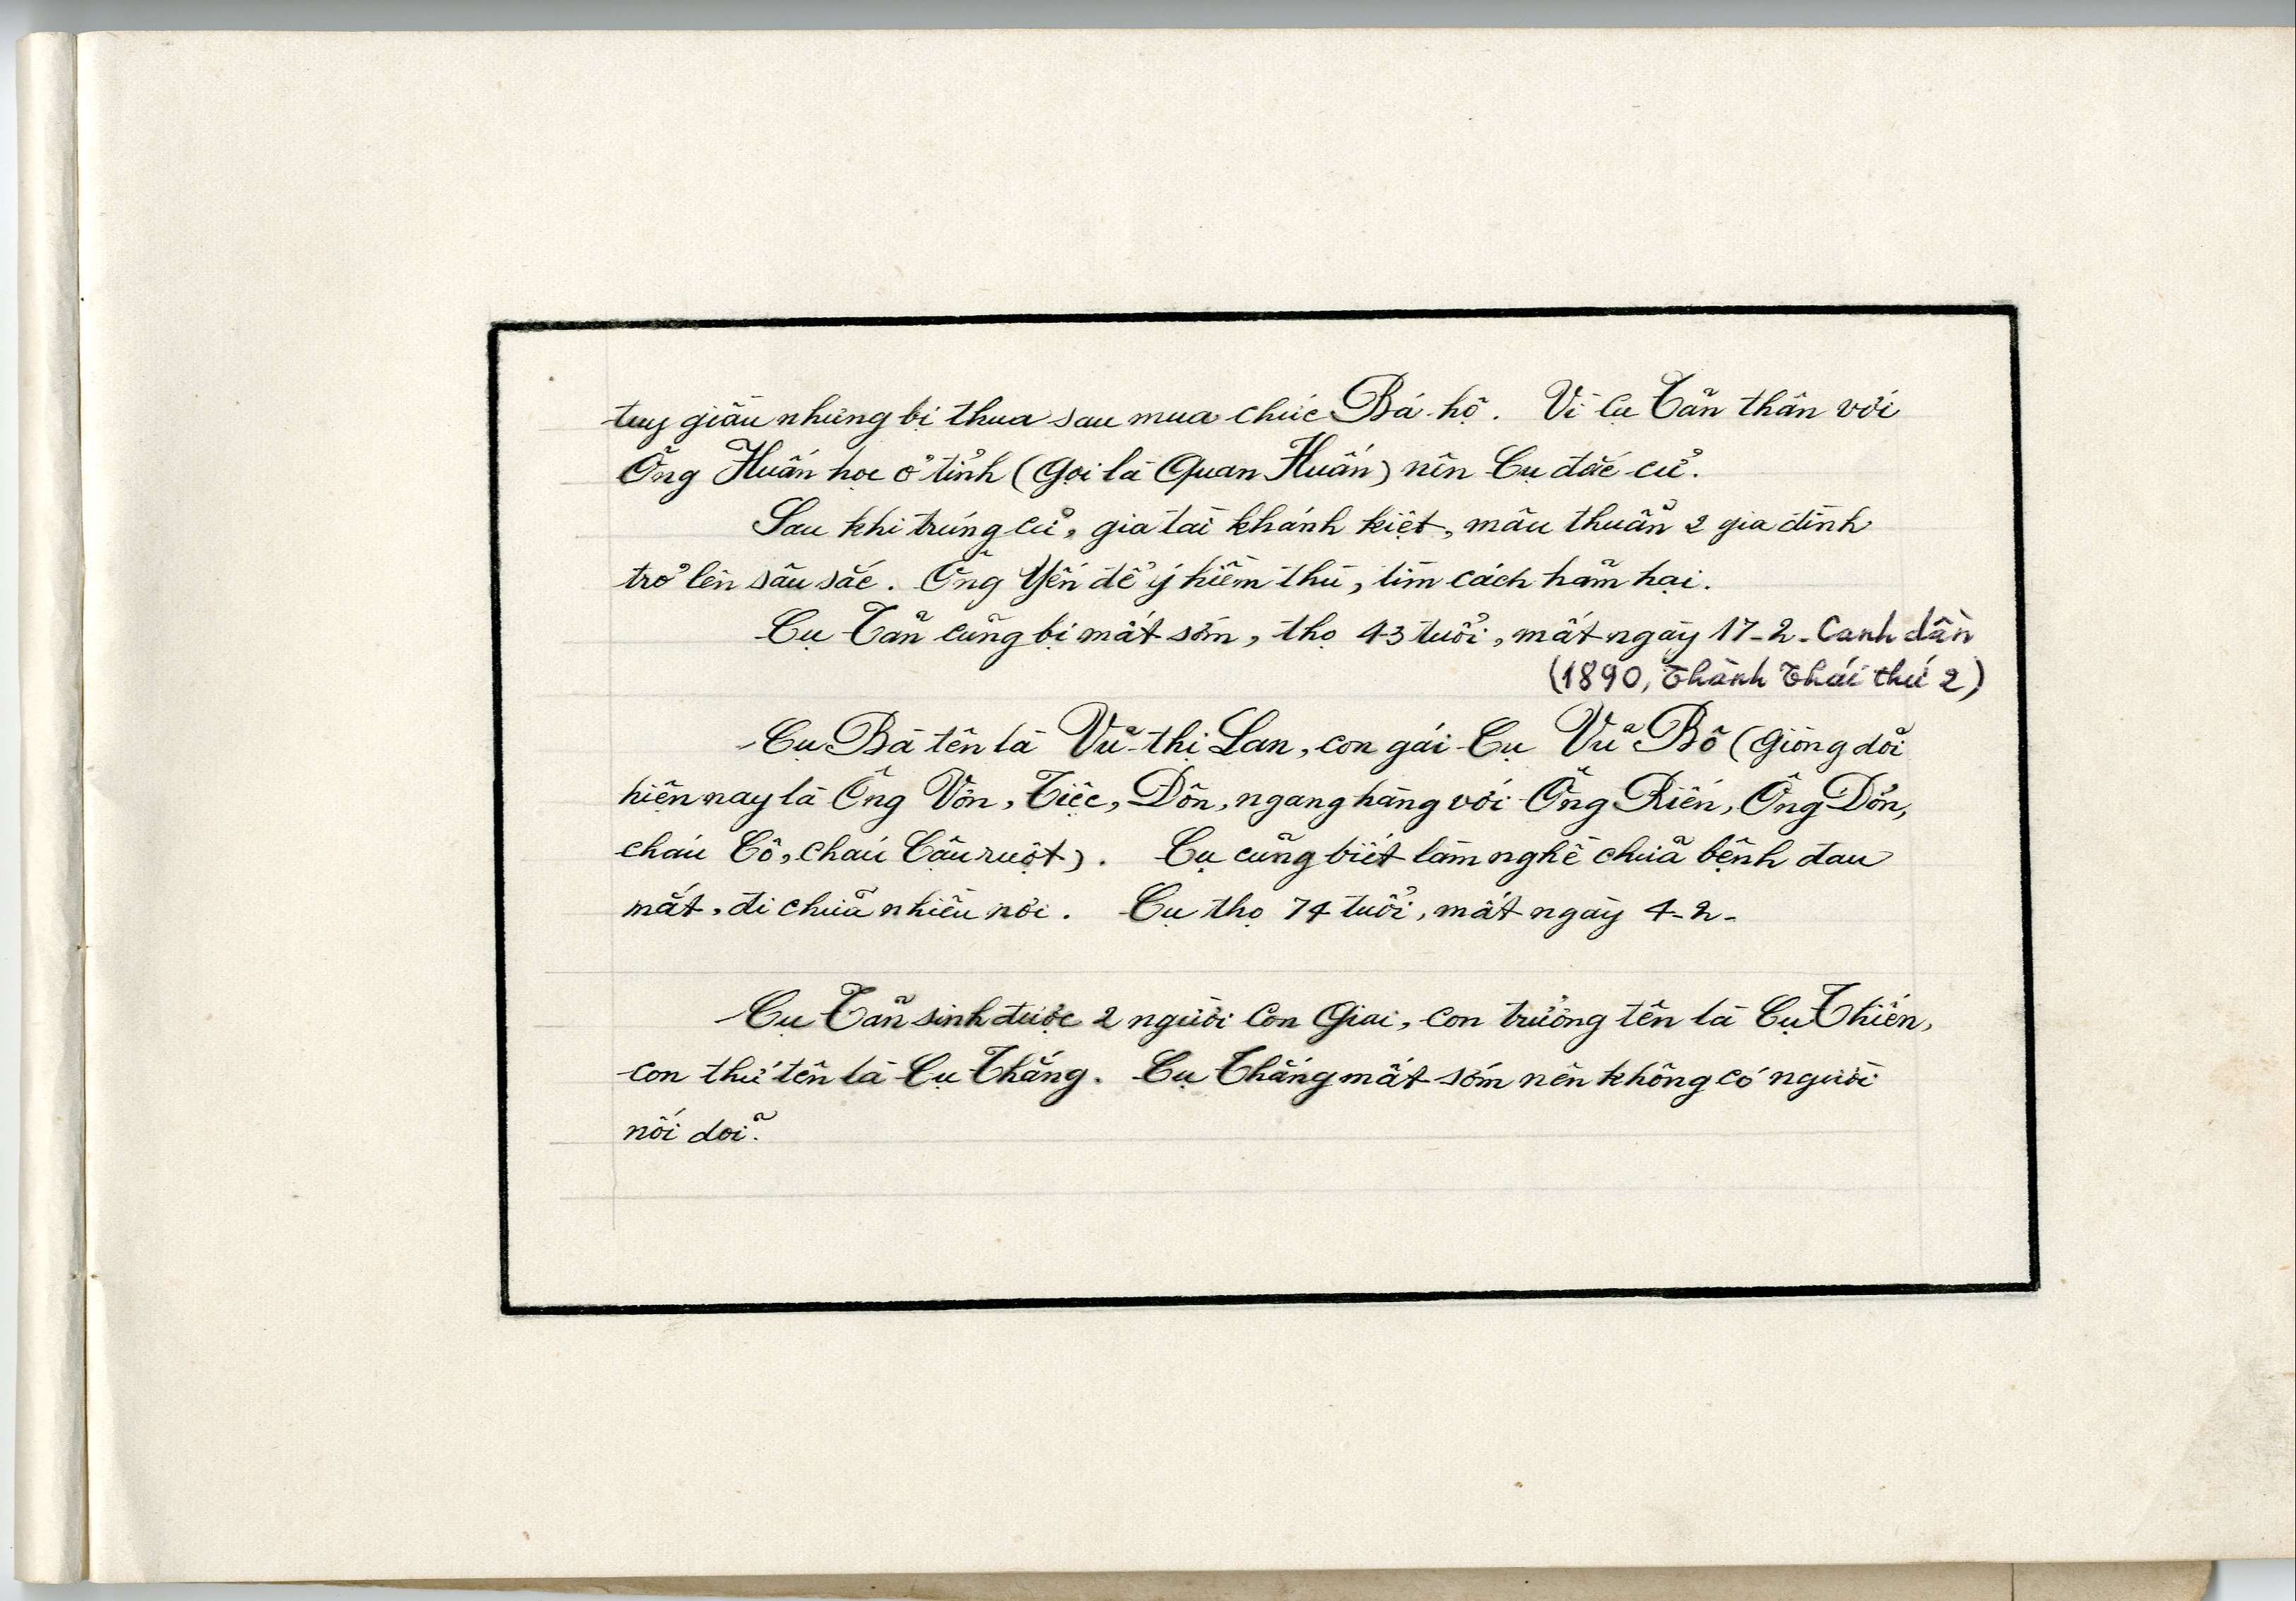 tuy giầu nhưng bị thua sau mua chức Bá hộ. Vì Cụ Tấn thân với
Ông Huấn học ở tỉnh (Gọi là Quan Huấn) nên Cụ đắc cử.
Sau khi trúng cử, gia tài khánh kiệt, mâu thuẫn 2 gia đình
trở lên sâu sắc. Ông Yến để ý hiềm thù, tìm cách hãm hại.
Cụ Tấn cũng bị mất sớm, thọ 43 tuổi, mất ngày 17-2-Canh dần
(1890, Thành Thái thứ 2)
Cụ Bà tên là Vũ-thị Lan, con gái Cụ Vũ Bô (Giòng dõi
hiện nay là Ông Vôn, Tiệc, Dôn, ngang hàng với Ông Riến, Ông Dốn,
cháu Cô, cháu Cậu ruột). Cụ cũng biết làm nghề chữa bệnh đau
mắt, đi chữa nhiều nơi. Cụ thọ 74 tuổi, mất ngày 4-2-
Cụ Tấn sinh được 2 người Con Giai, Con trưởng tên là Cụ Thiên,
con thứ tên là Cụ Thắng. Cụ Thắng mất sớm nên không có người
nối dõi.